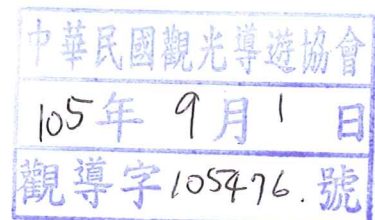 中華民國觀光導遊協會
105年9月1日
觀導字105476.號